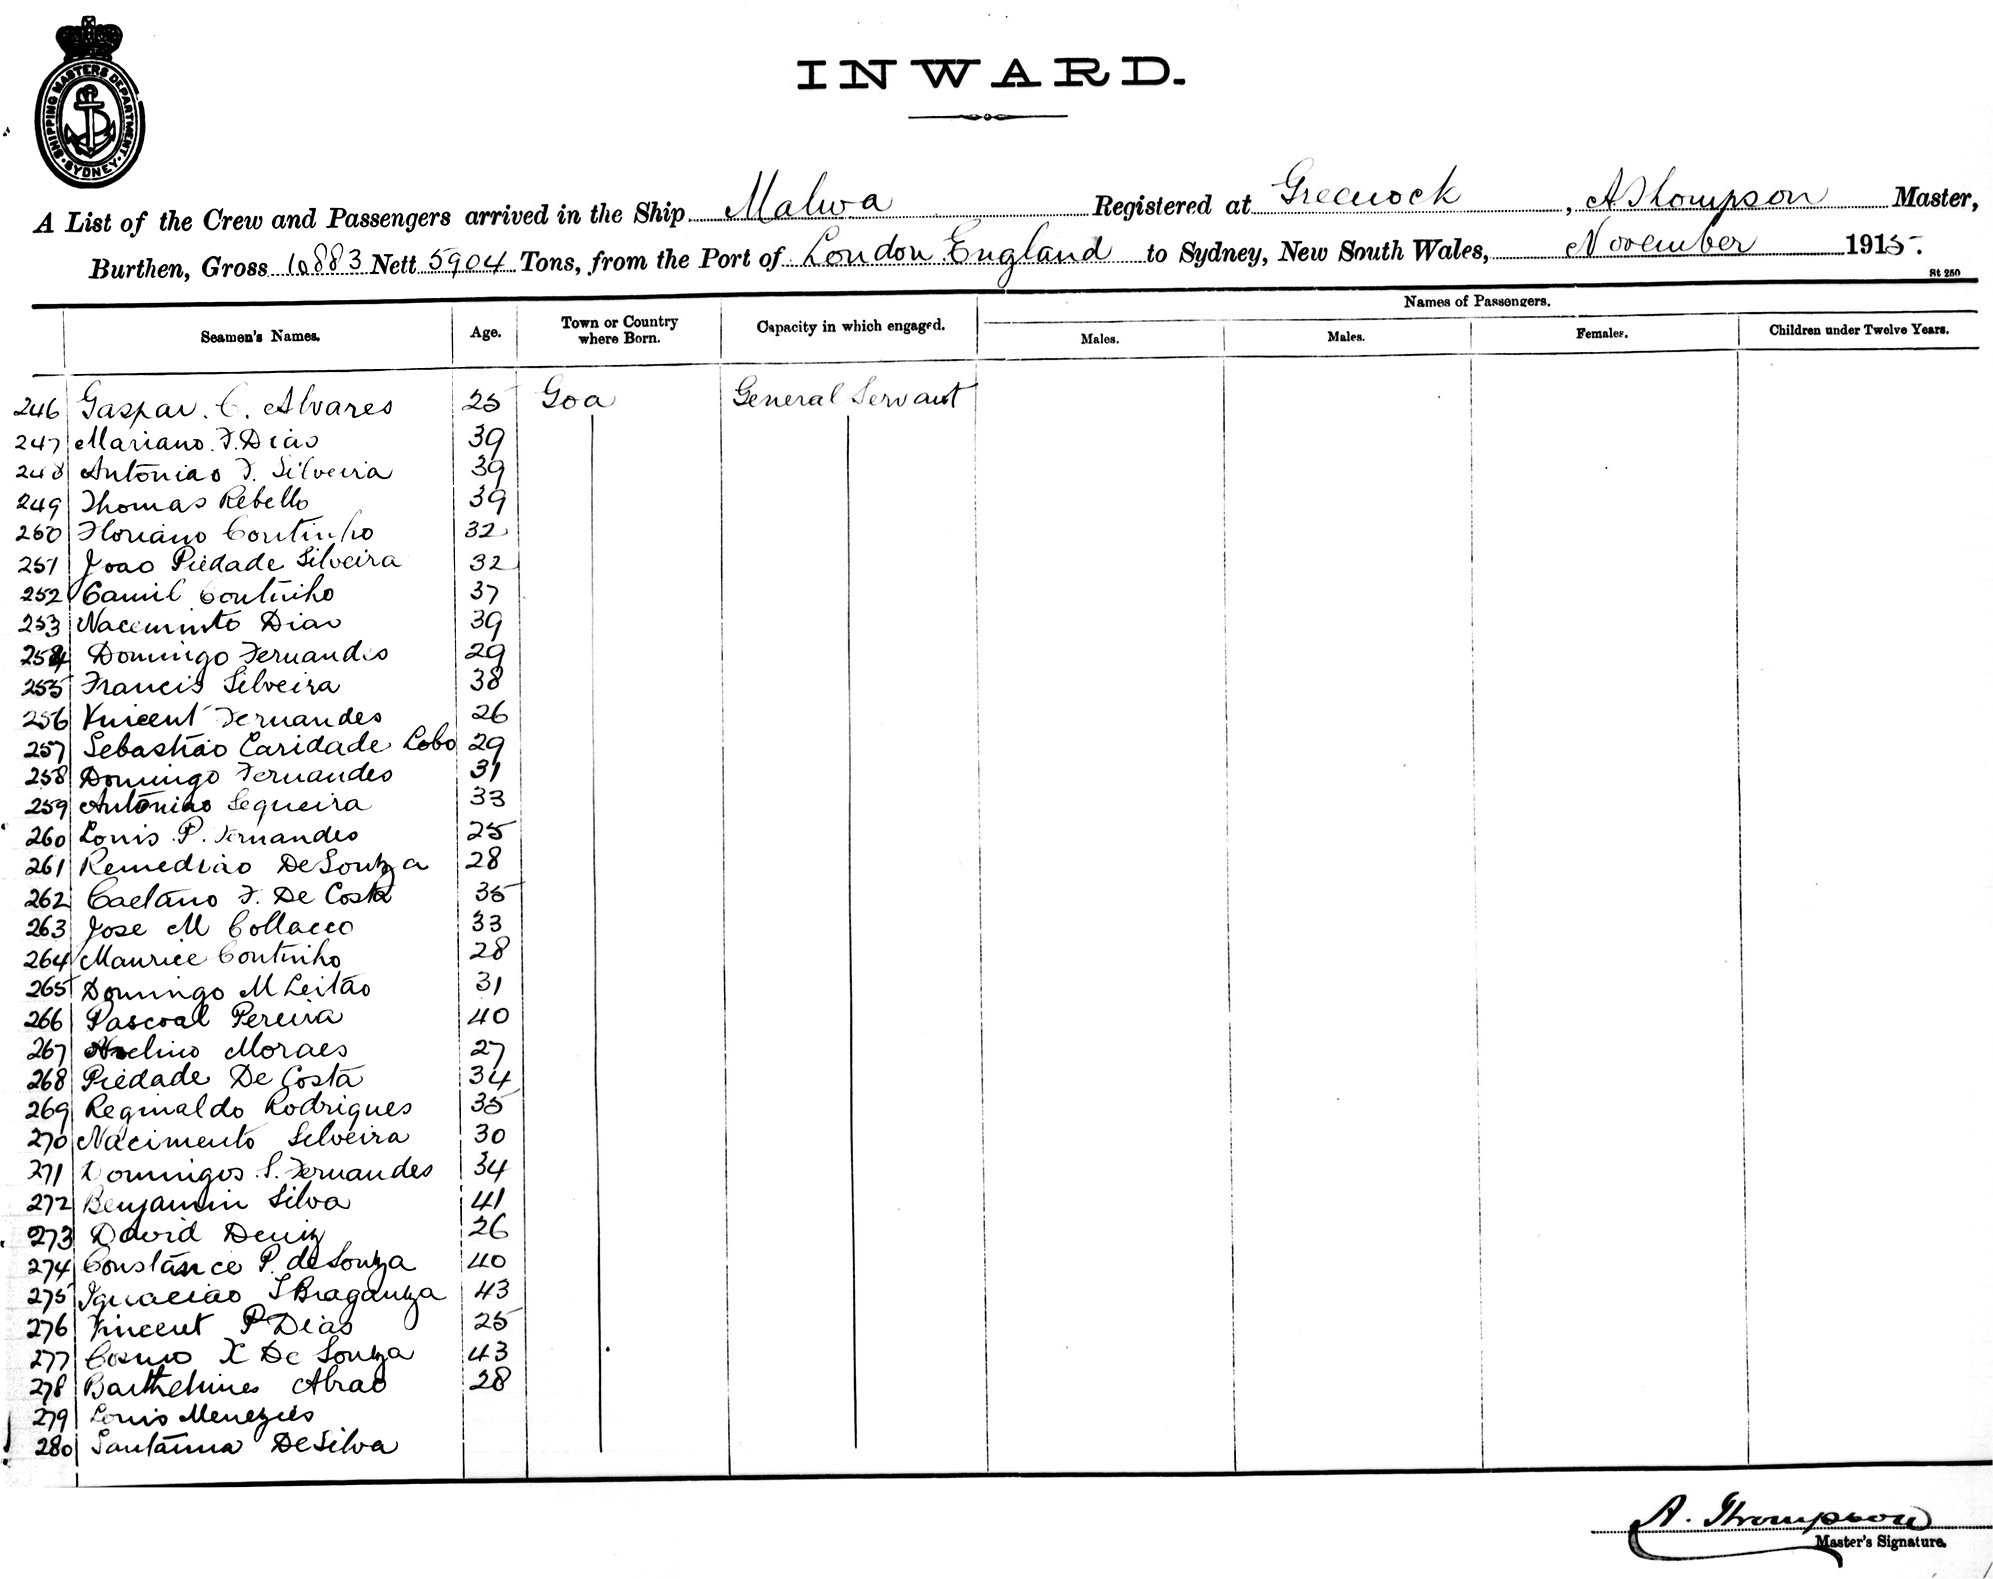 SHIPPING MASTERS DEPARTMENT
SYDNEY
INWARD.
A List of the Crew and Passengers arrived in the Ship Malwa Registered at Greenock, A Thompson Master,
Burthen, Gross 10883 Nett 5904 Tons, from the Port of London England to Sydney, New South Wales, November 1915.
St 250
Names of Passengers.
Seamen's Names. Age. Town or Country where Born. Capacity in which engaged. Males. Males. Females. Children under Twelve Years.
246 Gaspar. C. Alvares 25 Goa General Servant
247 Mariano. F. Dias 39
248 Antoniao F. Silveira 39
249 Thomas Rebello 39
250 Floriano Coutinho 32
251 Joao Piedade Silveira 32
252 Camil Coutinho 37
253 Naceminto Dias 39
254 Domingo Fernandes 29
255 Francis Silveira 38
256 Vincent Fernandes 26
257 Sebastiao Caridade Lobo 29
258 Domingo Fernandes 31
259 Antoniao Sequeira 33
260 Louis P. Fernandes 25
261 Remediao De Souza 28
262 Caetano F. De Costa 35
263 Jose M Collaeco 33
264 Maurice Coutinho 28
265 Domingo M Leitao 31
266 Pascoal Pereira 40
267 Moraes 27
268 Piedade De Costa 34
269 Reginaldo Rodrigues 35
270 Nacimento Silveira 30
271 Domingos S. Fernandes 34
272 Benjamin Silva 41
273 David Deniz 26
274 Constance P. de Souza 40
275 Ignaciao S Braganza 43
276 Vincent P Dias 25
277 Cosmo X De Souza 43
278 Barthelmes Abrao 28
279 Louis Menezies
280 Santanna De Silva
A. Thompson
Master's Signature.